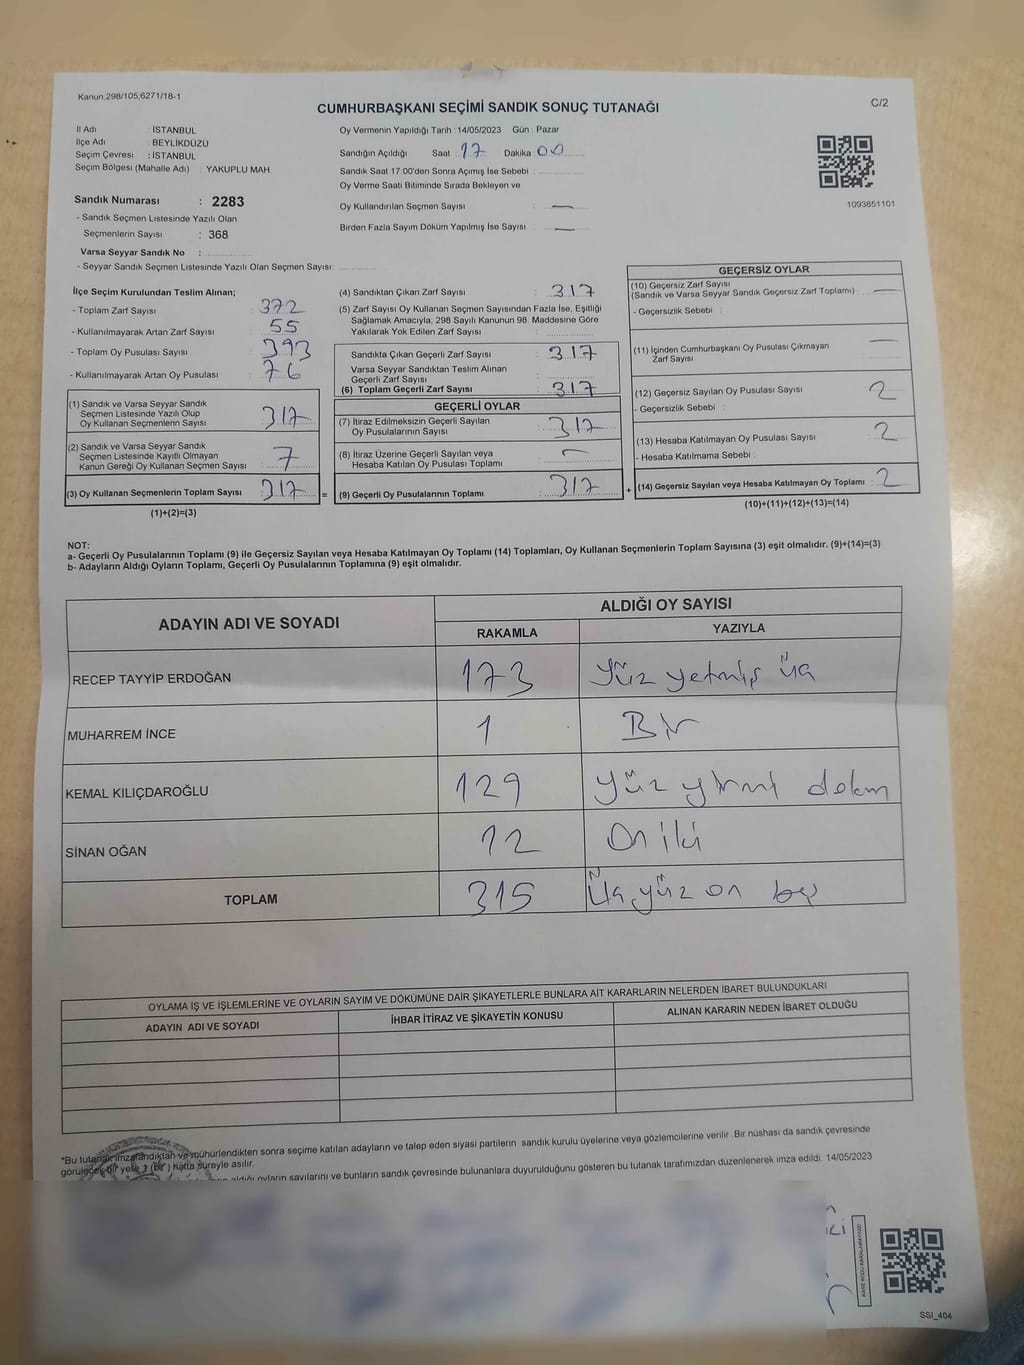 Kanun,298/105,6271/18-1
CUMHURBAŞKANI SEÇİMİ SANDIK SONUÇ TUTANAĞI
C/2
İl Adı : İSTANBUL
İlçe Adı : BEYLİKDÜZÜ
Seçim Çevresi : İSTANBUL
Seçim Bölgesi (Mahalle Adı) : YAKUPLU MAH.
Oy Vermenin Yapıldığı Tarih : 14/05/2023 Gün : Pazar
Sandığın Açıldığı Saat : 17 Dakika : 00
Sandık Saat 17:00'den Sonra Açımış İse Sebebi :
Oy Verme Saati Bitiminde Sırada Bekleyen ve
Oy Kullandırılan Seçmen Sayısı : —
Birden Fazla Sayım Döküm Yapılmış İse Sayısı : —
1093651101
Sandık Numarası : 2283
- Sandık Seçmen Listesinde Yazılı Olan
Seçmenlerin Sayısı : 368
Varsa Seyyar Sandık No :
- Seyyar Sandık Seçmen Listesinde Yazılı Olan Seçmen Sayısı:
İlçe Seçim Kurulundan Teslim Alınan;
- Toplam Zarf Sayısı : 372
- Kullanılmayarak Artan Zarf Sayısı : 55
- Toplam Oy Pusulası Sayısı : 393
- Kullanılmayarak Artan Oy Pusulası : 76
(1) Sandık ve Varsa Seyyar Sandık
Seçmen Listesinde Yazılı Olup
Oy Kullanan Seçmenlerin Sayısı : 317
(2) Sandık ve Varsa Seyyar Sandık
Seçmen Listesinde Kayıtlı Olmayan
Kanun Gereği Oy Kullanan Seçmen Sayısı : 7
(3) Oy Kullanan Seçmenlerin Toplam Sayısı : 317
(1)+(2)=(3)
(4) Sandıktan Çıkan Zarf Sayısı : 317
(5) Zarf Sayısı Oy Kullanan Seçmen Sayısından Fazla İse, Eşitliği
Sağlamak Amacıyla; 298 Sayılı Kanunun 98. Maddesine Göre
Yakılarak Yok Edilen Zarf Sayısı :
Sandıkta Çıkan Geçerli Zarf Sayısı : 317
Varsa Seyyar Sandıktan Teslim Alınan
Geçerli Zarf Sayısı :
(6) Toplam Geçerli Zarf Sayısı : 317
GEÇERLİ OYLAR
(7) İtiraz Edilmeksizin Geçerli Sayılan
Oy Pusulalarının Sayısı : 317
(8) İtiraz Üzerine Geçerli Sayılan veya
Hesaba Katılan Oy Pusulası Toplamı : —
= (9) Geçerli Oy Pusulalarının Toplamı : 317 +
GEÇERSİZ OYLAR
(10) Geçersiz Zarf Sayısı
(Sandık ve Varsa Seyyar Sandık Geçersiz Zarf Toplamı) : —
- Geçersizlik Sebebi :
(11) İçinden Cumhurbaşkanı Oy Pusulası Çıkmayan
Zarf Sayısı : —
(12) Geçersiz Sayılan Oy Pusulası Sayısı : 2
- Geçersizlik Sebebi :
(13) Hesaba Katılmayan Oy Pusulası Sayısı : 2
- Hesaba Katılmama Sebebi :
(14) Geçersiz Sayılan veya Hesaba Katılmayan Oy Toplamı : 2
(10)+(11)+(12)+(13)=(14)
NOT:
a- Geçerli Oy Pusulalarının Toplamı (9) ile Geçersiz Sayılan veya Hesaba Katılmayan Oy Toplamı (14) Toplamları, Oy Kullanan Seçmenlerin Toplam Sayısına (3) eşit olmalıdır. (9)+(14)=(3)
b- Adayların Aldığı Oyların Toplamı, Geçerli Oy Pusulalarının Toplamına (9) eşit olmalıdır.
ADAYIN ADI VE SOYADI
ALDIĞI OY SAYISI
RAKAMLA YAZIYLA
RECEP TAYYİP ERDOĞAN 173 Yüz yetmiş üç
MUHARREM İNCE 1 Bir
KEMAL KILIÇDAROĞLU 129 Yüz yirmi dokuz
SİNAN OĞAN 12 On iki
TOPLAM 315 Üç yüz on beş
OYLAMA İŞ VE İŞLEMLERİNE VE OYLARIN SAYIM VE DÖKÜMÜNE DAİR ŞİKAYETLERLE BUNLARA AİT KARARLARIN NELERDEN İBARET BULUNDUKLARI
ADAYIN ADI VE SOYADI İHBAR İTİRAZ VE ŞİKAYETİN KONUSU ALINAN KARARIN NEDEN İBARET OLDUĞU
*Bu tutanak imzalandıktan ve mühürlendikten sonra seçime katılan adayların ve talep eden siyasi partilerin sandık kurulu üyelerine veya gözlemcilerine verilir. Bir nüshası da sandık çevresinde
görülecek bir yere 1 (bir) hafta süreyle asılır.
aldığı oyların sayılarını ve bunların sandık çevresinde bulunanlara duyurulduğunu gösteren bu tutanak tarafımızdan düzenlenerek imza edildi. 14/05/2023
SSI_404